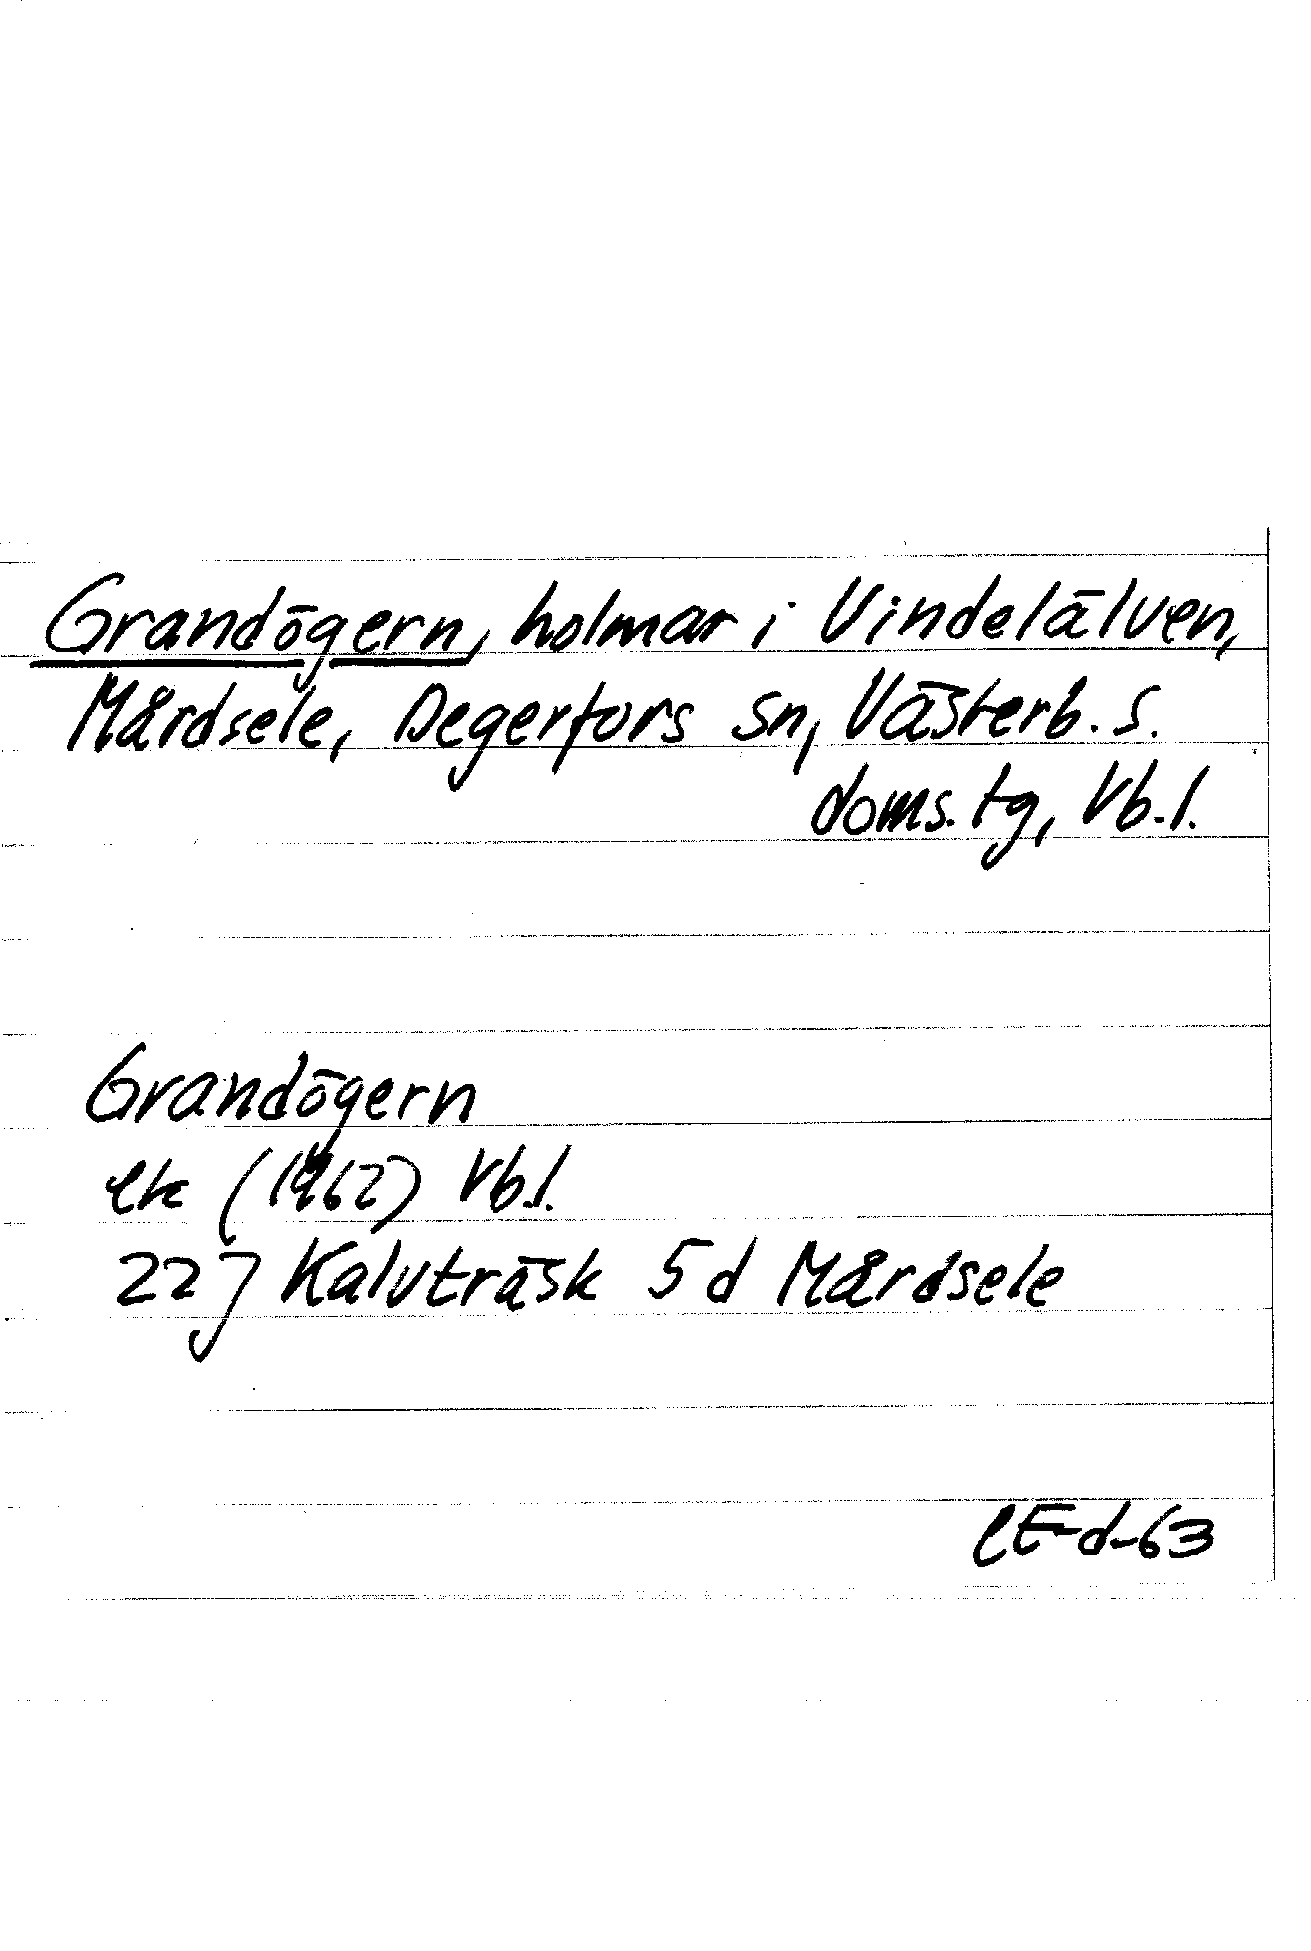 Grandögern, holmar i Vindelälven,
Mårdsele, Degerfors sn, Västerb. s.
doms. tg, Vb.l.
Grandögern
ek (1962) Vb.l.
22 J Kalvträsk 5d Mårdsele
CE-d-63